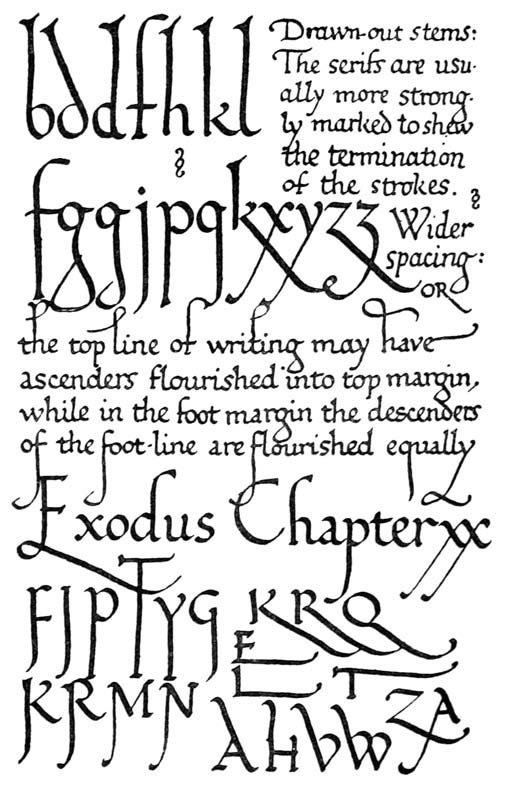 bddfhkl
Drawn-out stems:
The serifs are usu-
ally more strong-
ly marked to shew
the termination
of the strokes.
fggjpqkxyzʒ
Wider
spacing:
OR
the top line of writing may have
ascenders flourished into top margin,
while in the foot margin the descenders
of the foot-line are flourished equally
Exodus Chapter xx
FJPTYG KRQ
E
L T
KRMN ZA
AHVW